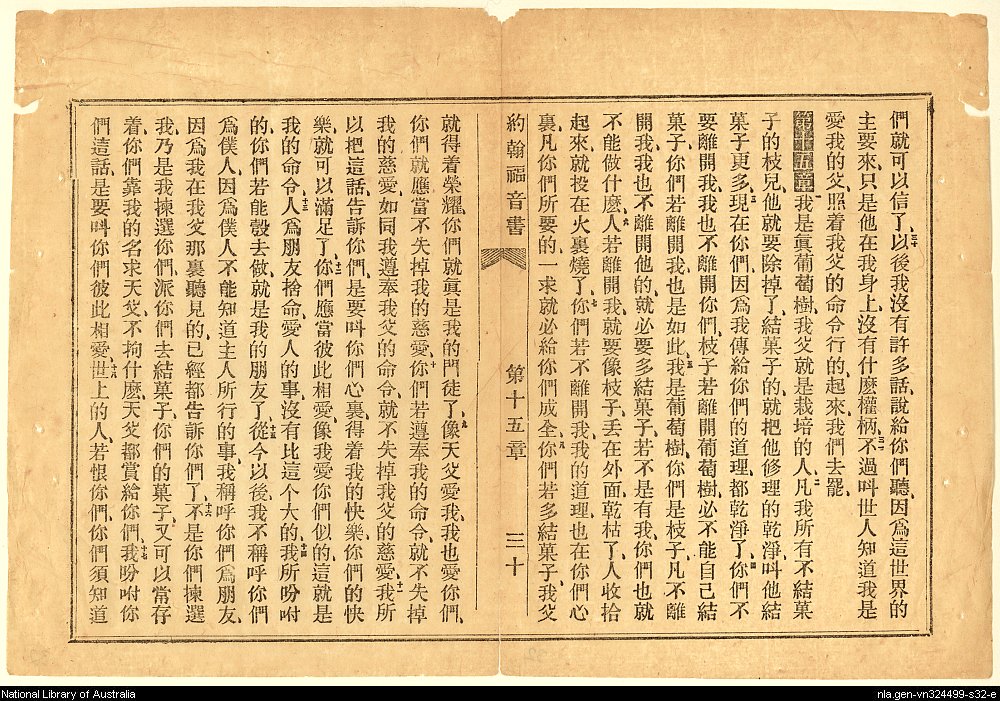 們就可以信了、三十以後我沒有許多話說給你們聽、因爲這世界的
主要來、只是他在我身上沒有什麽權柄、三一不過呌世人知道我是
愛我的父、照着我父的命令行的、起來、我們去罷、
第十五章 一我是眞葡萄樹、我父就是栽培的人、二凡我所有不結菓
子的枝兒、他就要除掉了、結菓子的、就把他修理的乾淨、呌他結
菓子更多、三現在你們、因爲我傳給你們的道理、都乾淨了、四你們不
要離開我、我也不離開你們、枝子若離開葡萄樹、必不能自己結
菓子、你們若離開我、也是如此、五我是葡萄樹、你們是枝子、凡不離
開我、我也不離開他的、就必要多結菓子、若不是有我、你們也就
不能做什麽、六人若離開我、就要像枝子、丟在外面、乾枯了、人收拾
起來、就投在火裏燒了、七你們若不離開我、我的道理、也在你們心
裏、凡你們所要的、一求就必給你們成全、八你們若多結菓子、我父
約翰福音書 第十五章 三十
就得着榮耀、你們就眞是我的門徒了、九像天父愛我、我也愛你們、
你們就應當不失掉我的慈愛、十你們若遵奉我的命令、就不失掉
我的慈愛、如同我遵奉我父的命令、就不失掉我父的慈愛、十一我所
以把這話告訴你們、是要呌你們心裏、得着我的快樂、你們的快
樂就可以滿足了、十二你們應當彼此相愛、像我愛你們似的、這就是
我的命令、十三人爲朋友捨命、愛人的事、沒有比這个大的、十四我所吩咐
的、你們若能彀去做、就是我的朋友了、十五從今以後、我不稱呼你們
爲僕人、因爲僕人不能知道主人所行的事、我稱呼你們爲朋友、
因爲我在我父那裏聽見的、已經都告訴你們了、十六不是你們揀選
我、乃是我揀選你們、派你們去結菓子、你們的菓子、又可以常存
着、你們靠我的名求天父、不拘什麽、天父都賞給你們、十七我吩咐你
們這話、是要呌你們彼此相愛、十八世上的人、若恨你們、你們須知道
National Library of Australia
nla.gen-vn324499-s32-e